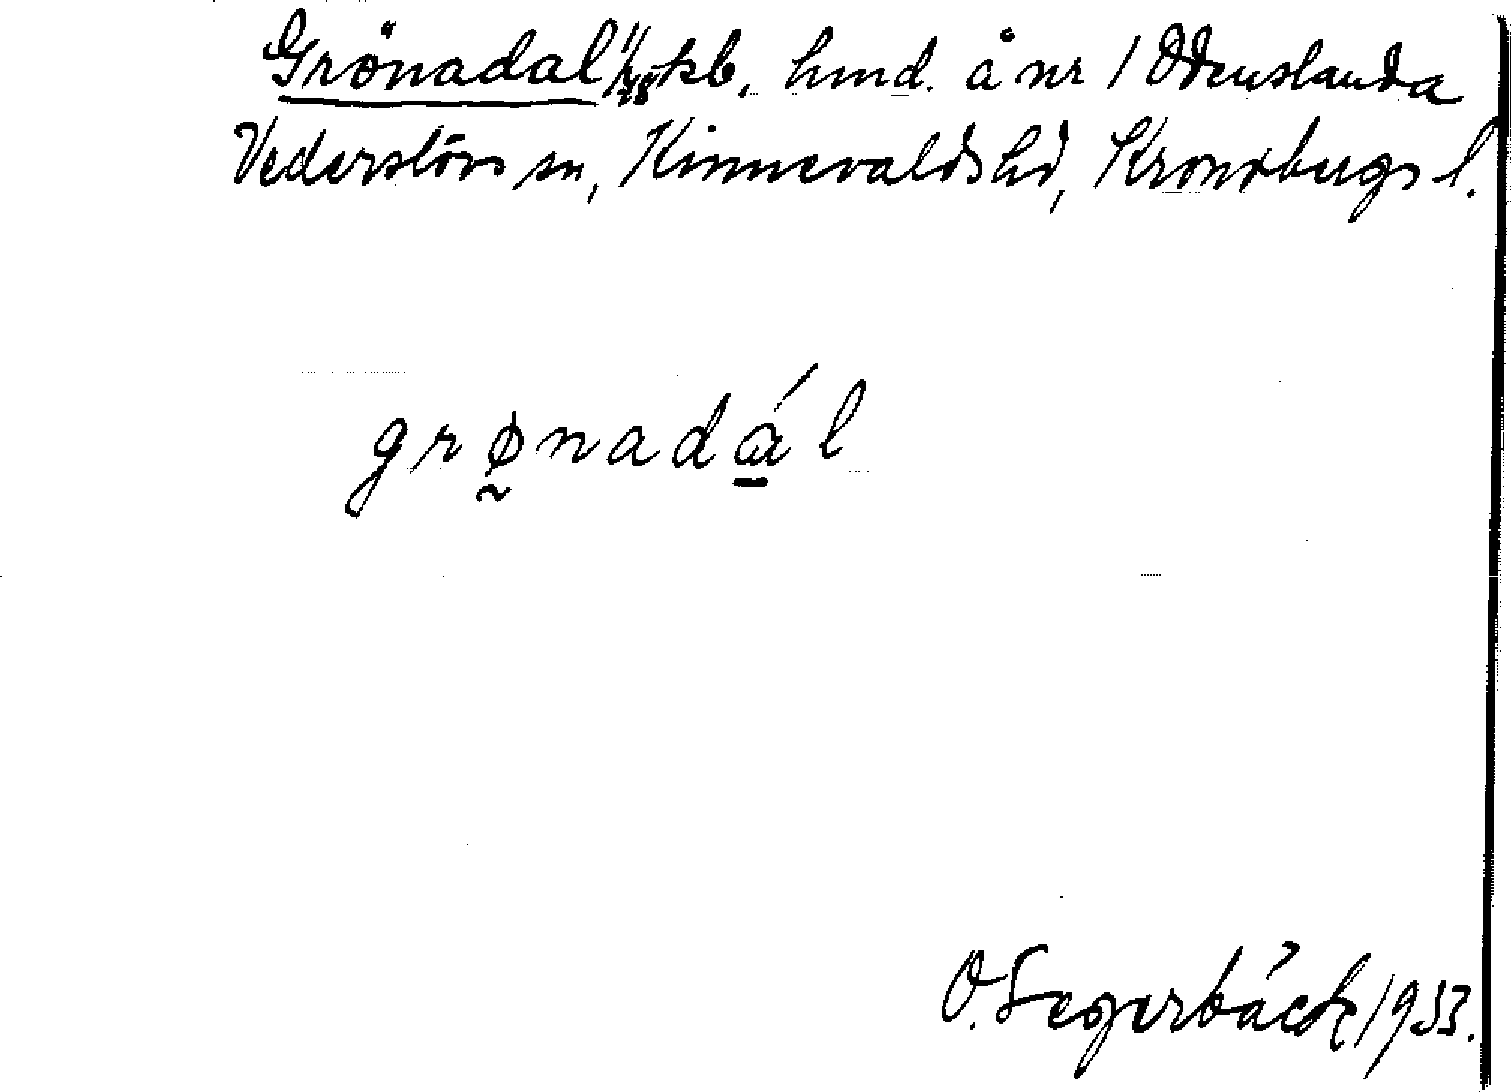 Grönadal kb, hmd. å nr 1 Odenslanda
Vederslövs sn, Kinnevalds hd, Kronobergs l.
grønadál
O. Segerbäck 1933.